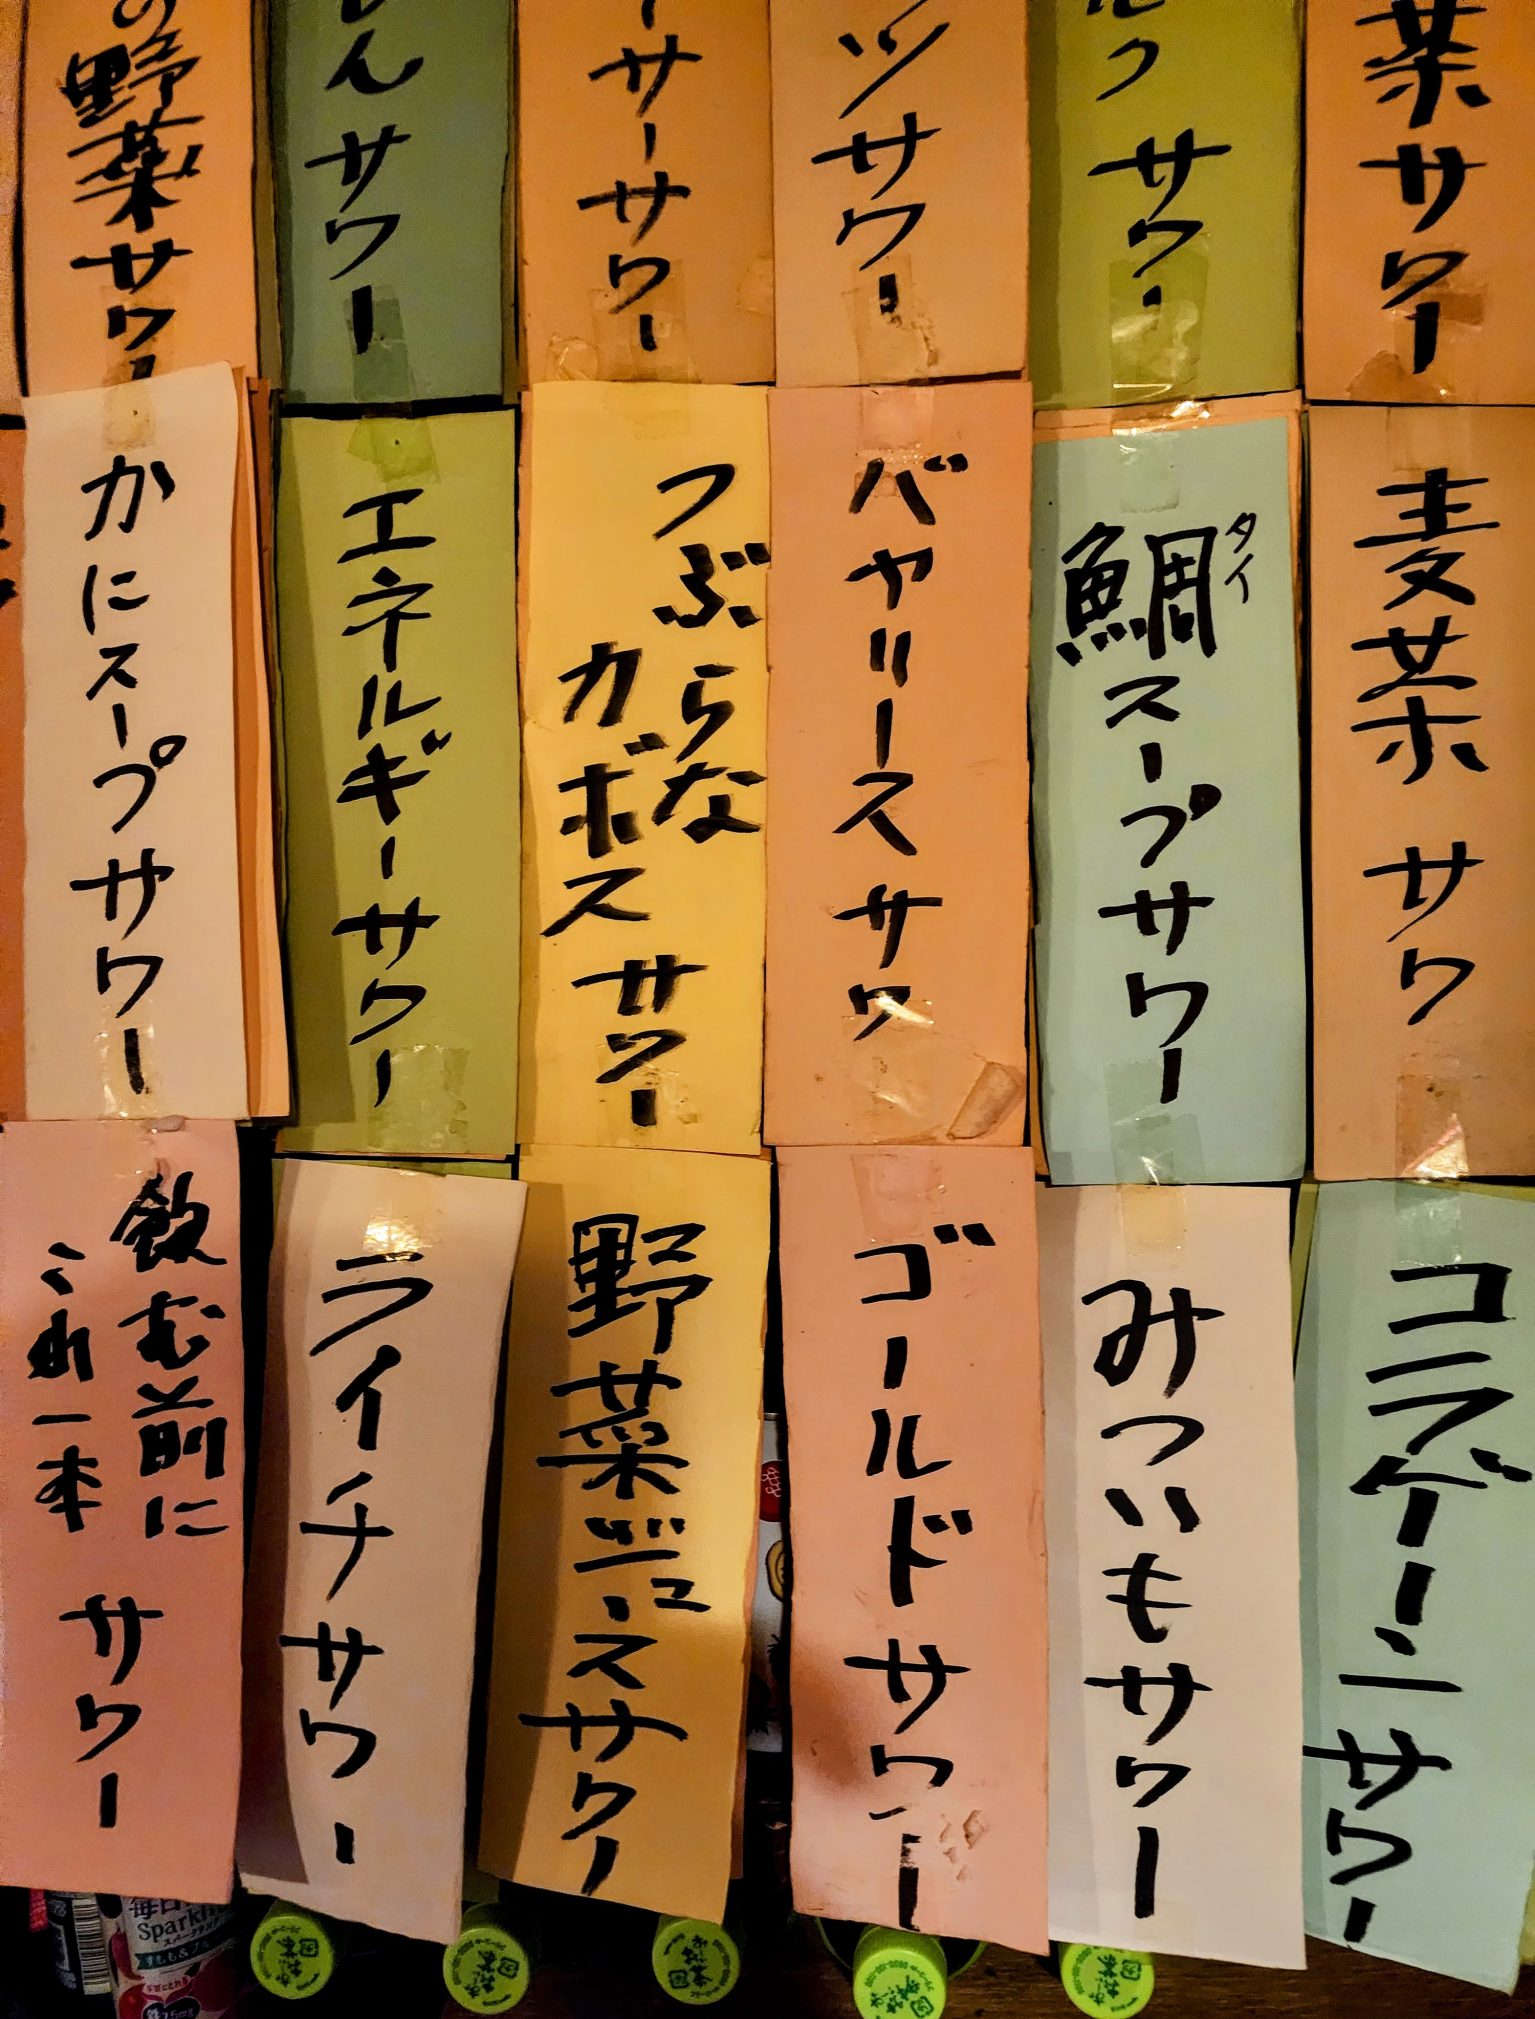 の野菜サワー
れんサワー
ーサーサワー
ツサワー
ルクサワー
葉サワー
かにスープサワー
エネルギーサワー
つぶらな
カボスサワー
バヤリースサワ
鯛スープサワー
タイ
麦茶サワ
飲む前に
これ一本
サワー
ライチサワー
野菜ジュースサワー
ゴールドサワー
みついもサワー
コラーゲーンサワー
毎日
Sparkl
スパークリング
すもも&